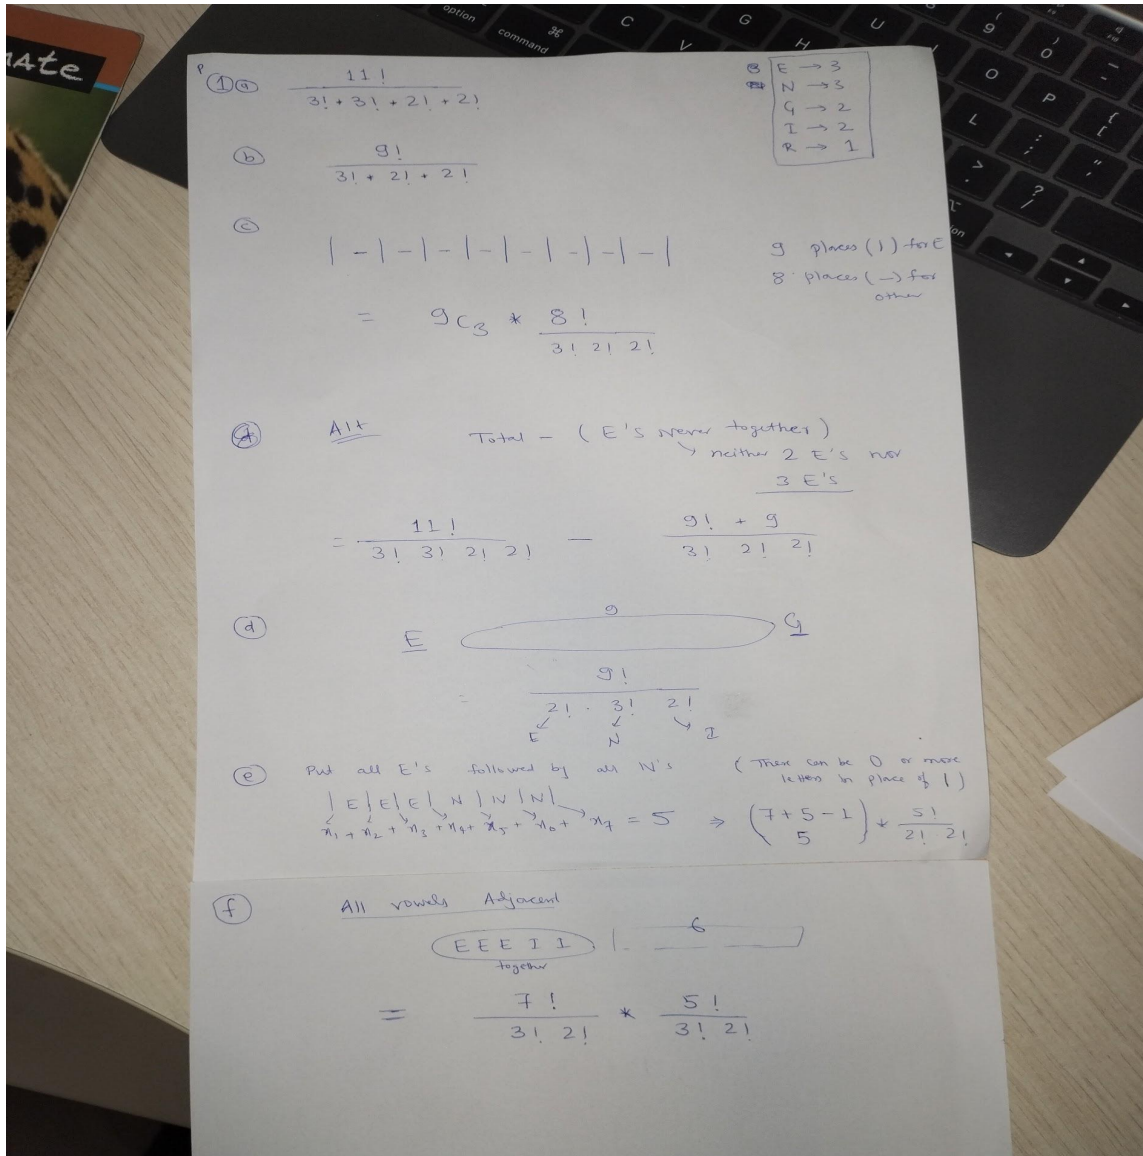 MATE
option
command
⌘
C
V
G
H
U
(
9
)
0
O
P
L
{
[
:
;
"
'
>
.
?
/
P
① ⓐ 11!
3! + 3! + 2! + 2!
E → 3
N → 3
G → 2
I → 2
R → 1
ⓑ 9!
3! + 2! + 2!
ⓒ
| - | - | - | - | - | - | - | - |
9 places (|) for E
8 places (-) for
other
= 9C3 * 8!
3! 2! 2!
Alt Total - (E's never together)
↘ neither 2 E's nor
3 E's
= 11! - 9! + 9
3! 3! 2! 2! 3! 2! 2!
ⓓ E 9 G
= 9!
2! · 3! 2!
E N I
ⓔ Put all E's followed by all N's (There can be 0 or more
letters in place of |)
| E | E | E | N | N | N |
x1 + x2 + x3 + x4 + x5 + x6 + x7 = 5 ⇒ (7+5-1
5) * 5!
2! · 2!
ⓕ All vowels Adjacent
E E E I I 6
together
= 7! * 5!
3! 2! 3! 2!